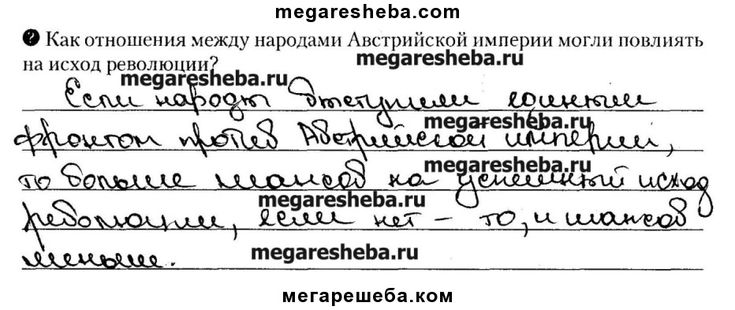 megaresheba.com
? Как отношения между народами Австрийской империи могли повлиять
на исход революции?
megaresheba.ru
megaresheba.ru
Если народы выступили единым
megaresheba.ru
фронтом против Австрийской империи,
megaresheba.ru
то больше шансов на успешный исход
революции, если нет – то, и шансов
megaresheba.ru
меньше.
мегарешеба.ком